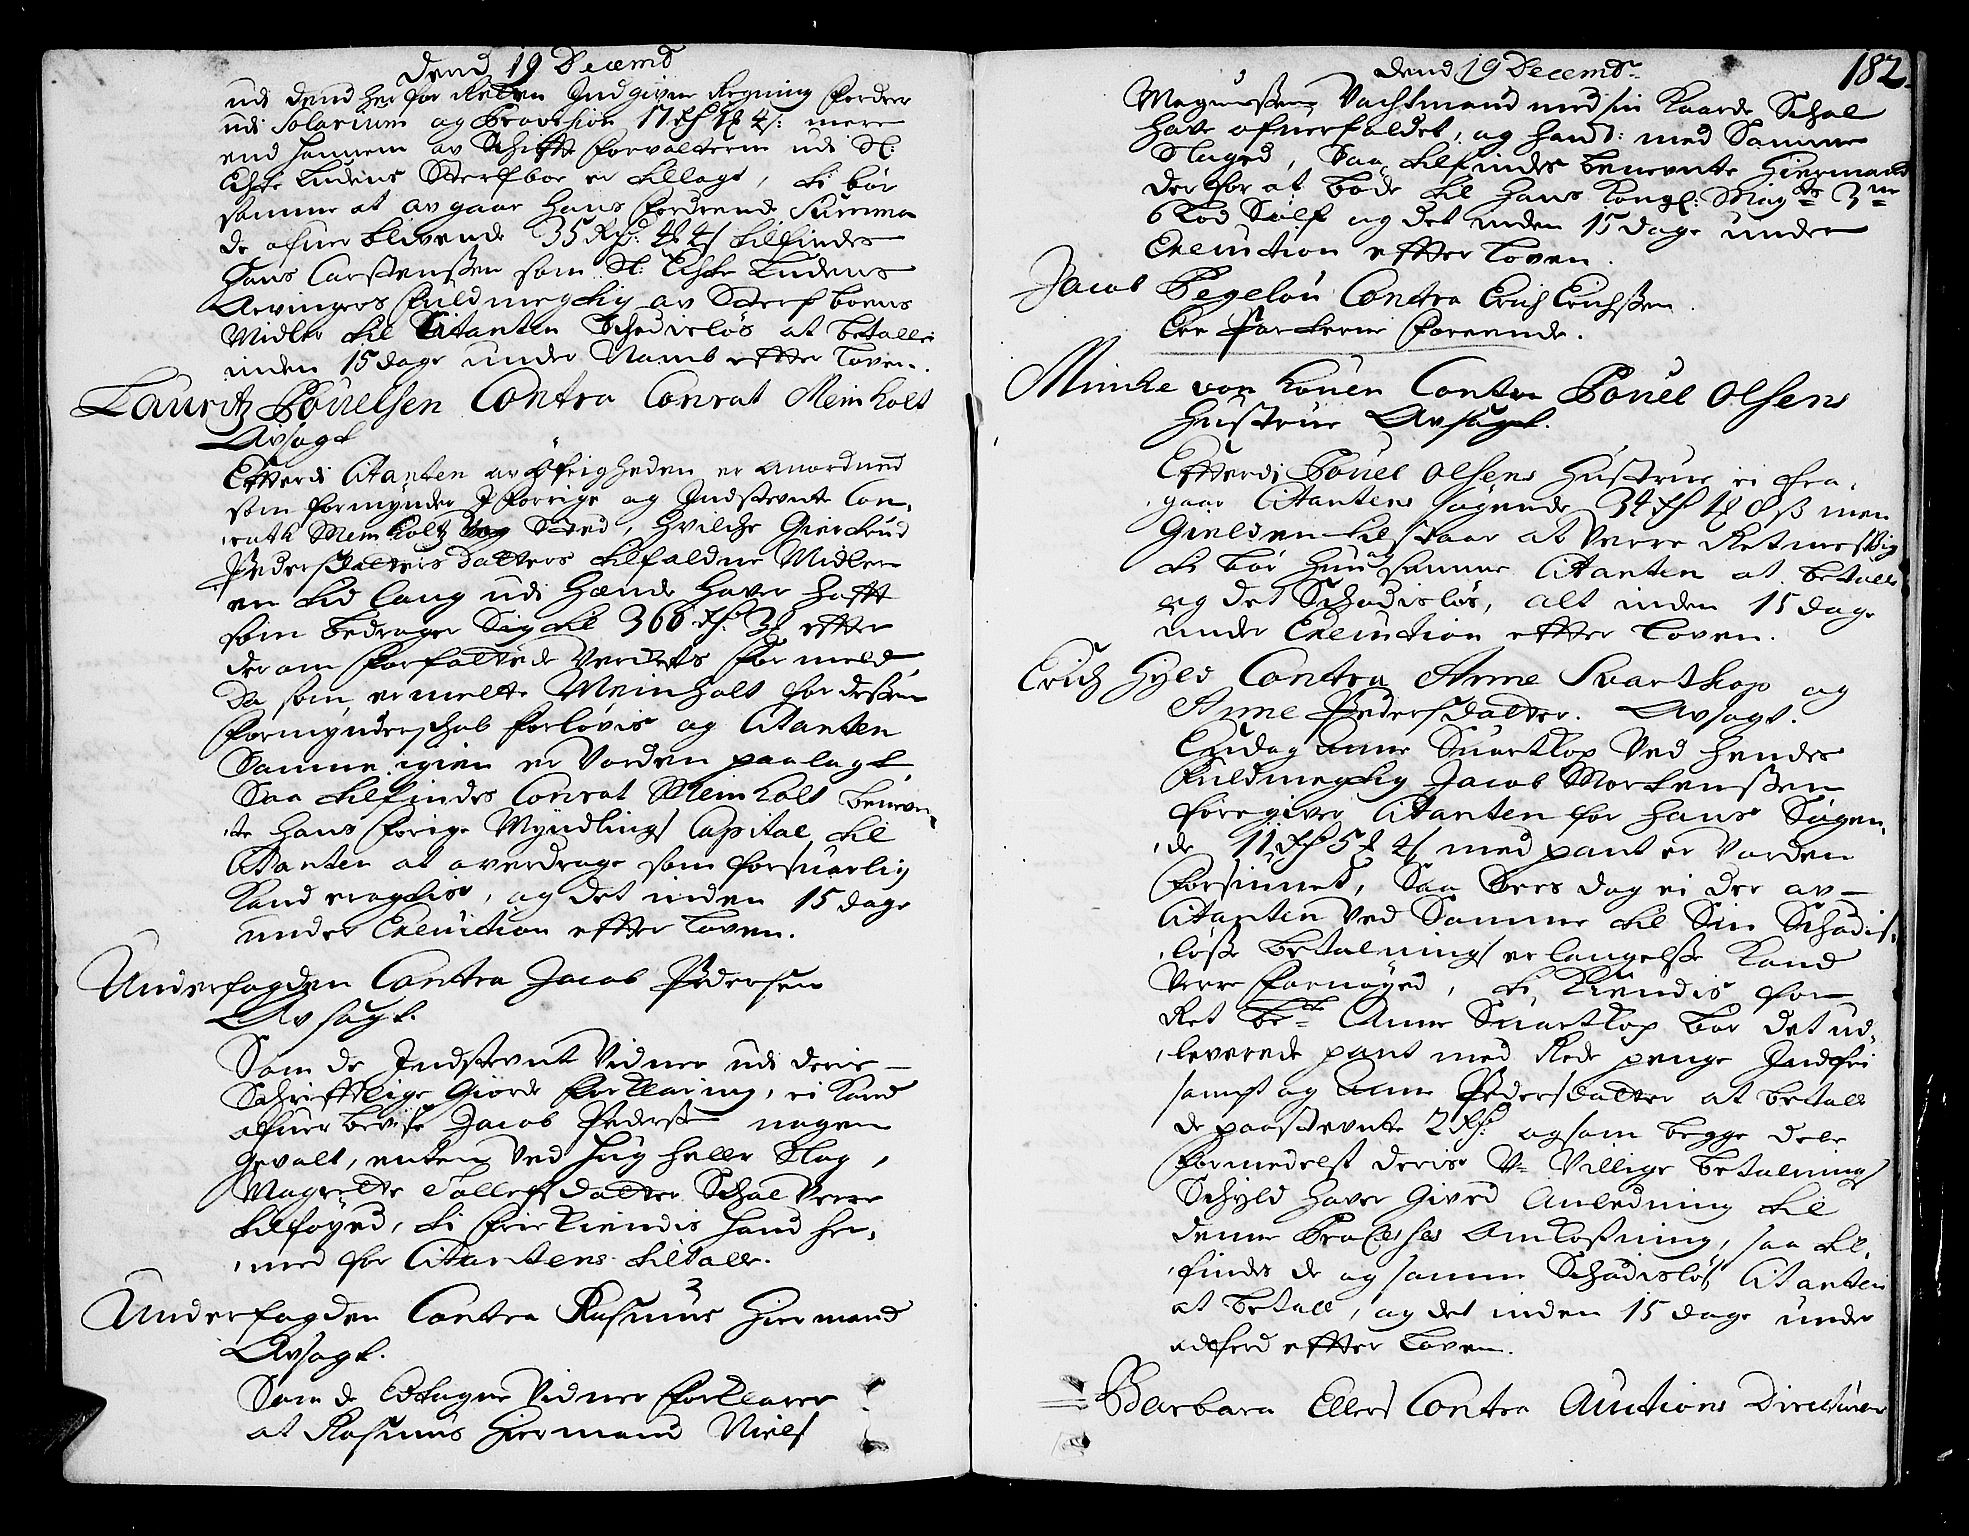 dend 19 Decemb
udi dend her for Retten Indgivne Regning fordrer
udi Solarium og Provision 17 rd 1 4 s: mere
end hannem av Schifte forvalterne udi Sl:
Ludens Sterfboe er tillagt, ti bør
samme at avgaar hans fordrende Summa
de ofuer blivende 35 Rd: 4 4 s tilfindes
Hans Carstensen som Sl: Ludens
Arvingers fuldmegtig av Sterfboens
Midler til Citanten Schadisløs at betalle
inden 15 dage under Namb effter loven.
Lauritz Pouelsen Contra Conrat Meinholt
Avsagt
Efterdi Citanten av Øfrigheden er anordned
som formynder I forrige og Indstevnte Con-
rath Meinholtz Sted, hvilche Giertrud
Pedersdatters Datters tilfaldne Midler
en tid lang udi Hænde haver hafft
som bedrager Sig til 366 rd. 3 effter
derom forfattede Verchs formeld,
Da som ermelte Meinholt for dessen
formynderschab forlovis og Citanten
Samme igien er vorden paalagt,
Saa tilfindes Conrat Meinholt benevn-
te hans forige Myndlings Capital, til
Citanten at overdrage som forsuarlig
kand eragtis, og det inden 15 dage
under Execution effter loven.
Underfogden Contra Jacob Pedersen
Avsagt.
Som de Indstevnt Vidner udi deris
Schrifftlige Giorde forklaring, ei kand
ofuer bevise Jacob Peders: nogen
Gevalt, enten ved hug heller Slag,
Magrette Tollefsdatter Schal være
tilføyed, ti frie kiendis hand her-
med for Citantens tiltalle.
Underfogden Contra Rasmus Hiermand
Avsagt.
Som de Edtagne Vidner forklarer
at Rasmus Hiermand Niels
dend 19 Decembr:
182.
Magnussen Vachtmand med sin Kaarde Schal
have ofuerfaldet, og hand: med Samme
Slaged, Saa tilfindes benevnte Hiermand
derfor at bøde til Hans Kongl: Mayts 3de
6 Lod Sølf og det inden 15 dage under
Execution effter Loven.
Jacob Pegelou Contra Erich Erichssen
Ere Parterne foreende.
Minche von Louen Contra Pouel Olsens
Hustrue Avsagt.
Efterdi Pouel Olsens Hustrue ei fra-
gaar Citantens søgende 34 rd 1 8 s men
Gielden tilstaar at Verre Retmessig
ti bør hun og samme Citanten at betalle
og det Schadisløs, alt inden 15 dage
under Execution effter loven.
Erich Hyld Contra Anne Suartkop og
Anne Pedersdatter. Avsagt.
Endog Anne Suartkop ved hendes
fuldmegtig Jacob Mortenssen
foregiver Citanten for hans Søgen-
de 11 rd 5 4 s med pant er vorden
forsinnet, Saa Sees dog ei der av
Citanten ved Samme til Sin Schadis-
løsse betalnings erlangelsse kand
Verre fornøyed, ti Kiendis for
Ret bete Anne Suartkop bør det ud-
leverede pant med Rede penge Indfri
sampt og Anne Pedersdatter at betalle
de paastevnte 2 Rd: og som begge dele
formedelst deris U- Villige betalnings
Schyld haver Gived Anledning til
denne Processes Omkostning, saa til-
findes de og samme Schadisløs Citanten
at betalle, og det inden 15 dage under
adferd effter Loven.
Barbara Ellers Contra Auctions Directeuren